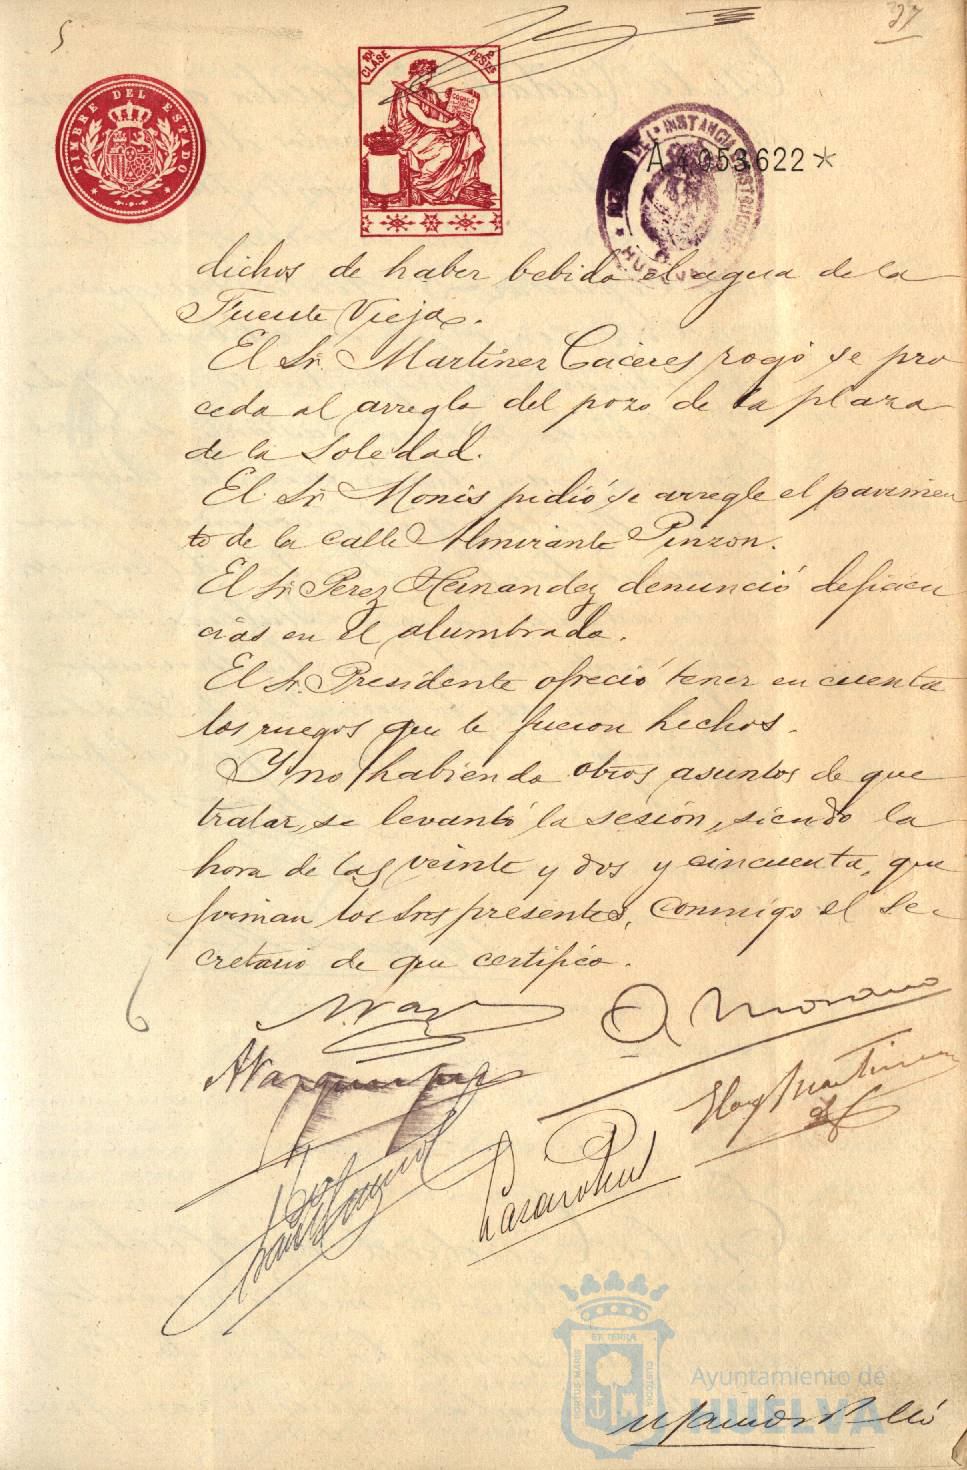 5
37
TIMBRE DEL ESTADO
10ª CLASE 2 PESTAS
CODIGO
INSTANCIA
HUELVA
A4953622*
dichos de haber bebido el agua de la
Fuente Vieja.
El Sr. Martinez Caceres rogó se pro
ceda al arreglo del pozo de la plaza
de la Soledad.
El Sr. Monis pidió se arregle el pavimen
to de la calle Almirante Pinzon.
El Sr. Perez Hernandez denunció deficien
cias en el alumbrado.
El Sr. Presidente ofreció tener en cuenta
los ruegos que le fueron hechos.
Y no habiendo otros asuntos de que
tratar, se levantó la sesión, siendo la
hora de las veinte y dos y cincuenta, que
firman los Sres presentes, conmigo el Se-
cretario de que certifico.
A. Morano
Eloy Martinez
Lazaro Perez
EX TERRA
PORTUS MARIS
CUSTODIA
Ayuntamiento de
HUELVA